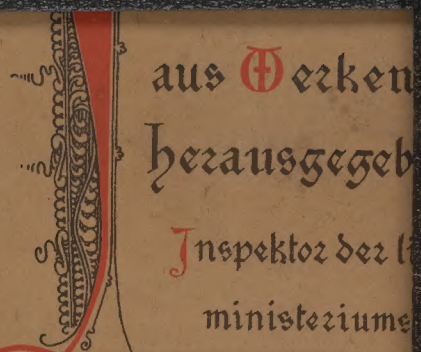 aus Werken
herausgegeb
Inspektor der li
ministeriums